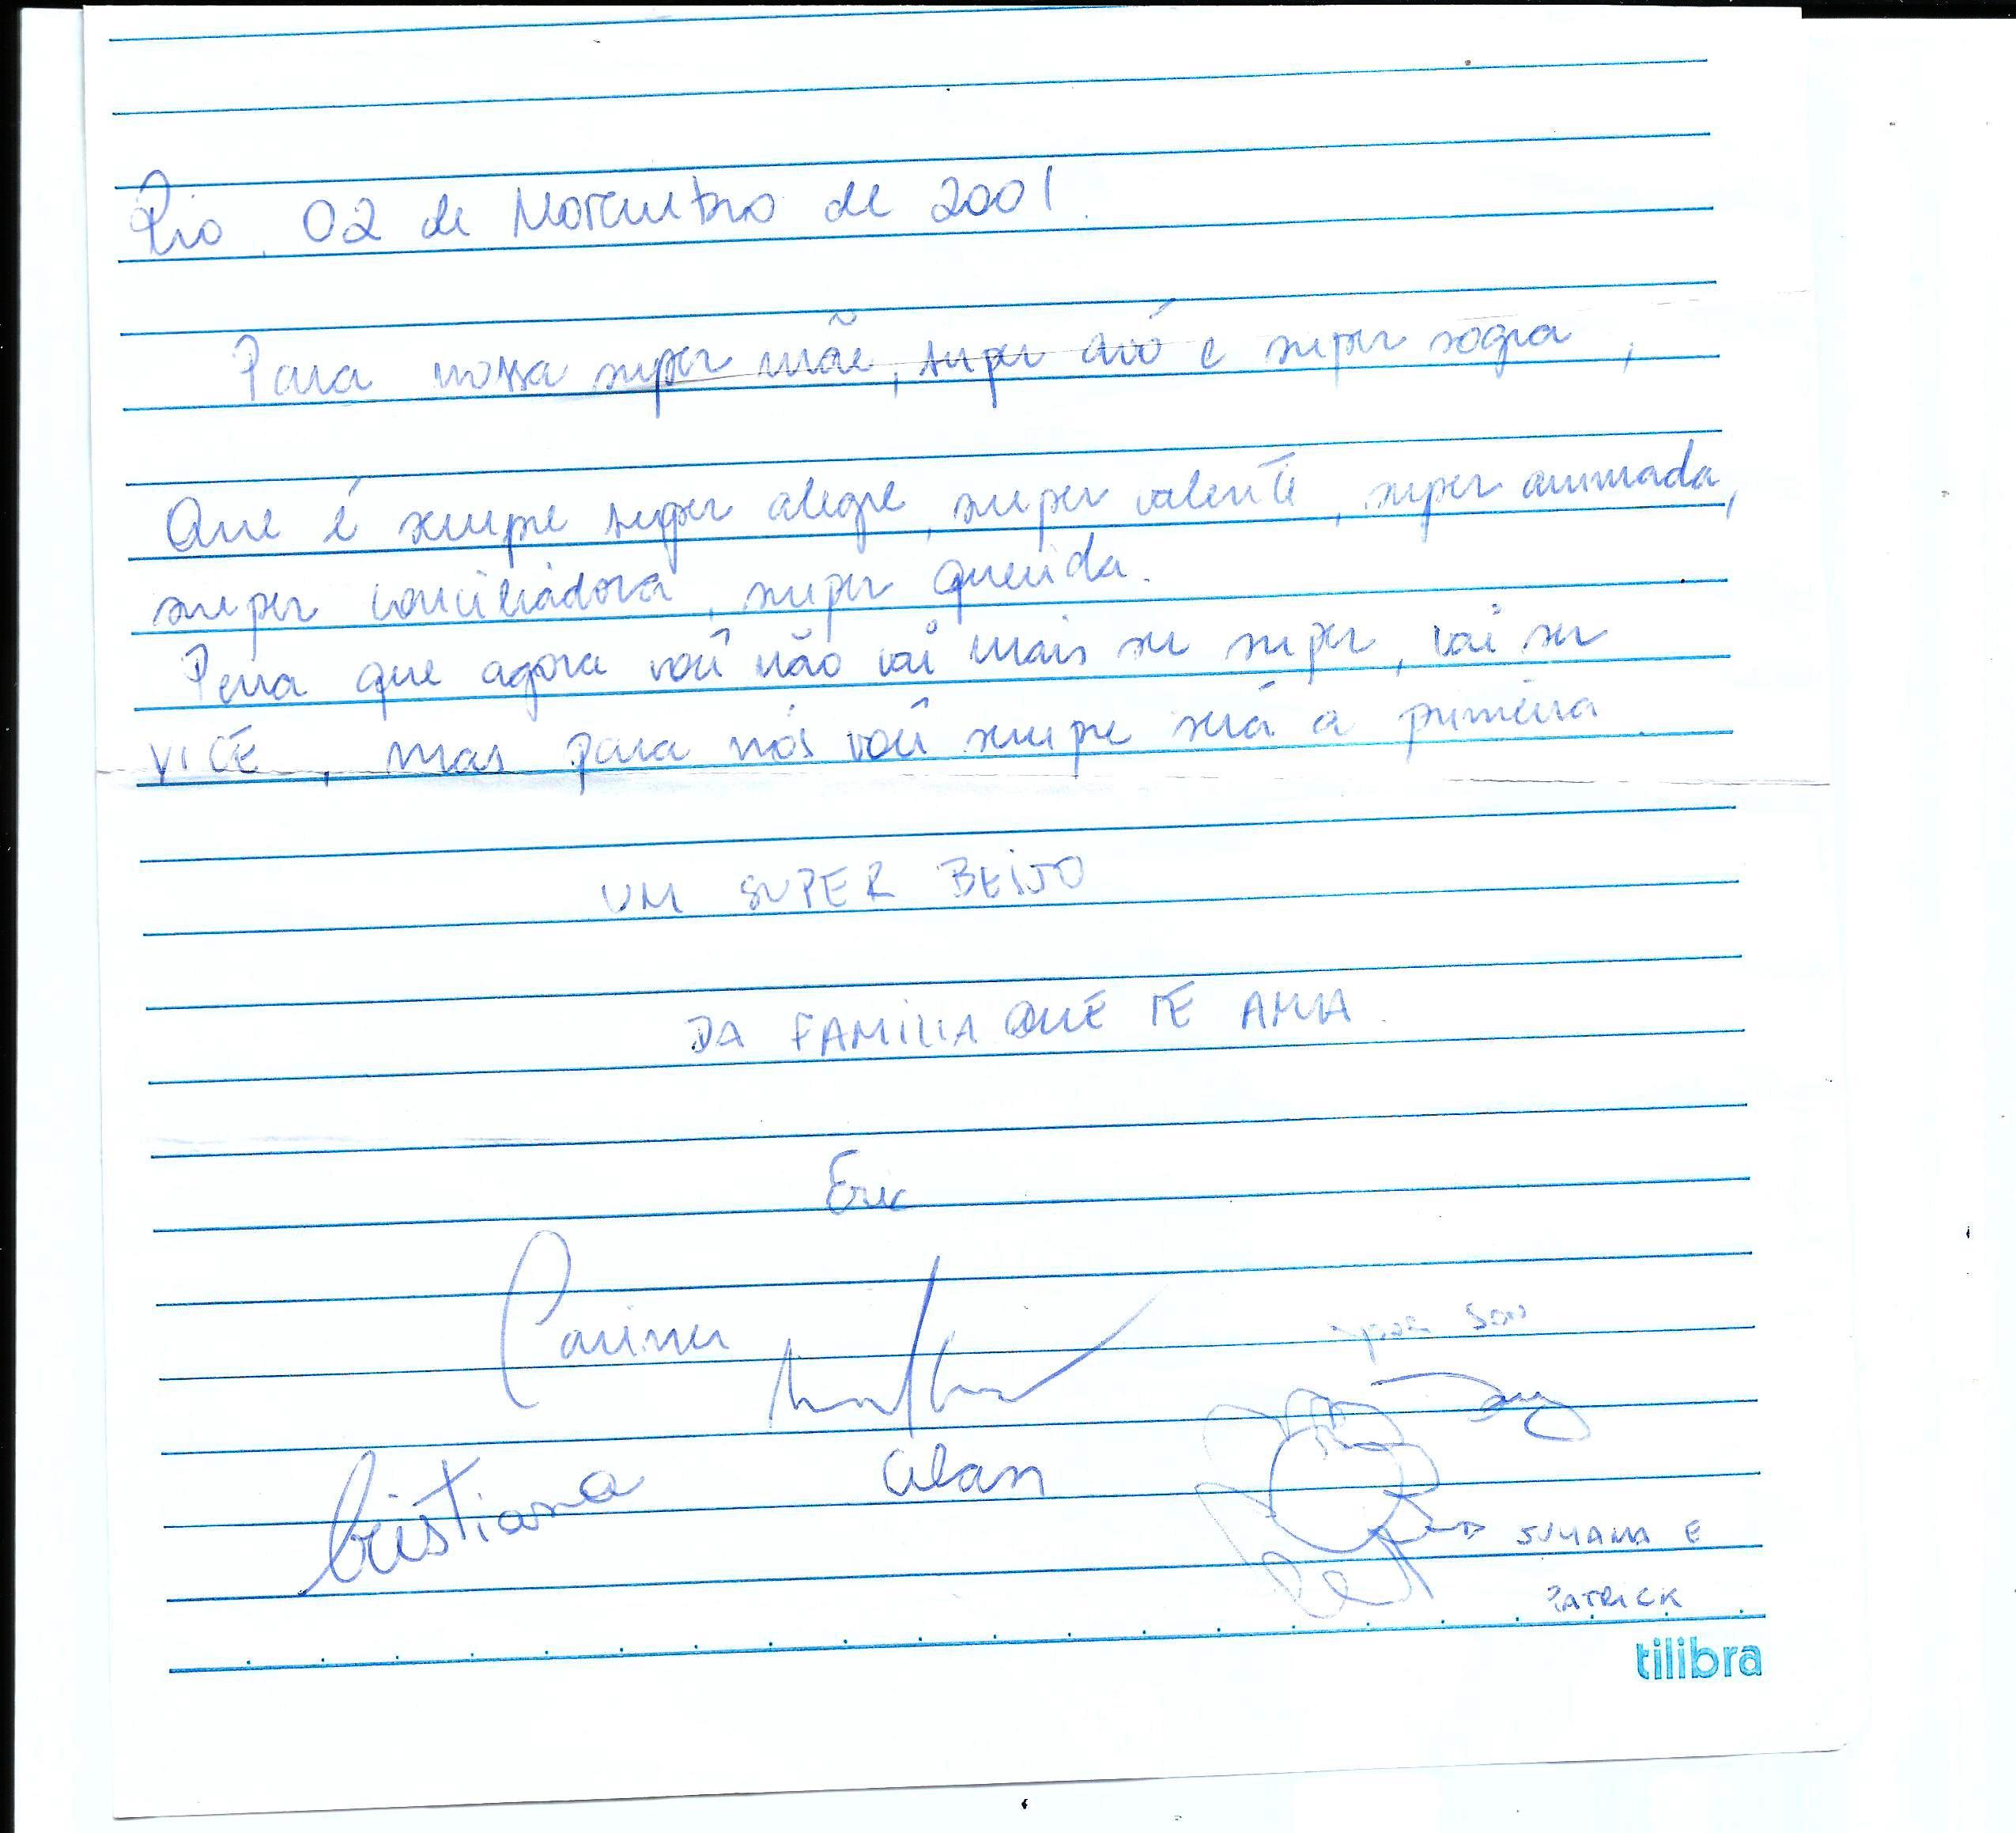 Rio, 02 de Novembro de 2001.
Para nossa super mãe, super avó e super sogra,
Que é sempre super alegre, super valente, super animada,
super conciliadora, super querida.
Pena que agora você não vai mais ser super, vai ser
VICE, mas para nós você sempre será a primeira.
UM SUPER BEIJO
DA FAMILIA QUE TE AMA.
Eric
Carina
your son
Cristiana Alan
SUHANA E
PATRICK
tilibra